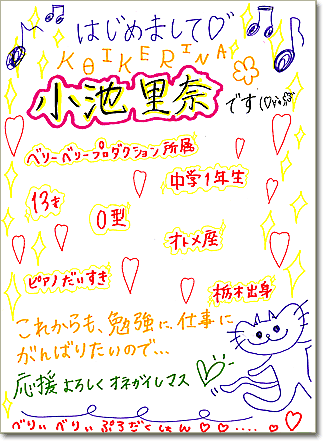 はじめまして♡
KOIKERINA
小池里奈です
ベリーベリープロダクション所属
中学1年生
13才
O型
オトメ座
ピアノだいすき
栃木出身
これからも、勉強に、仕事に
がんばりたいので…
応援よろしくオネガイシマス
べりぃべりぃぷろだくしょん♡♡....